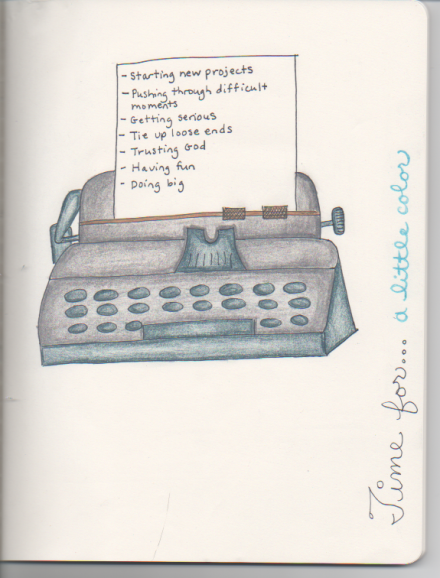 - Starting new projects
- Pushing through difficult
moments
- Getting serious
- Tie up loose ends
- Trusting God
- Having fun
- Doing big
Time for... a little color